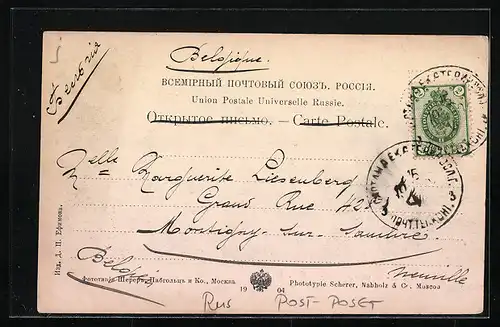 Belgique.
Бельгія
ВСЕМІРНЫЙ ПОЧТОВЫЙ СОЮЗЪ. РОССІЯ.
Union Postale Universelle Russie.
Открытое письмо. — Carte Postale.
Melle Marguerite Liesenberg
Grand Rue 42
Montigny-sur-Sambre
Belgie
Neuville
Изд. Д. П. Ефимова.
Фототипія Шереръ, Набгольцъ и Ко., Москва
1904
Phototypie Scherer, Nabholz & Co., Moscou
Rus POST-POSET